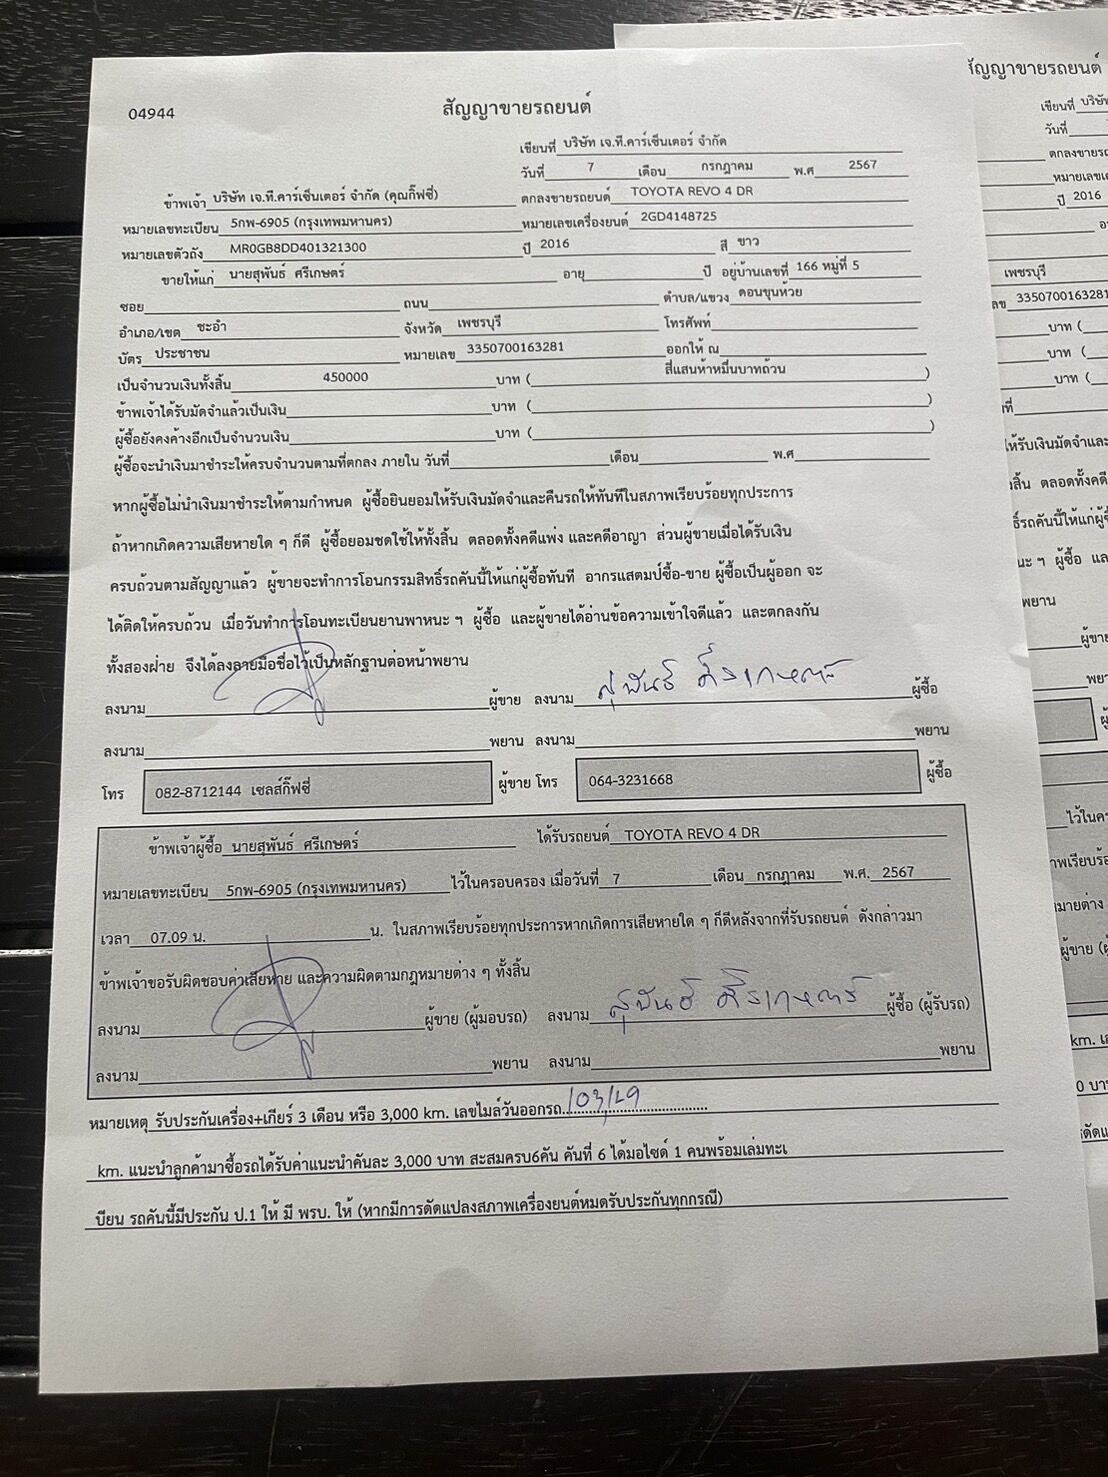 04944
สัญญาขายรถยนต์
เขียนที่ บริษัท เจ.ที.คาร์เซ็นเตอร์ จำกัด
วันที่ 7 เดือน กรกฎาคม พ.ศ 2567
ข้าพเจ้า บริษัท เจ.ที.คาร์เซ็นเตอร์ จำกัด (คุณกิ๊ฟซี่) ตกลงขายรถยนต์ TOYOTA REVO 4 DR
หมายเลขทะเบียน 5กพ-6905 (กรุงเทพมหานคร) หมายเลขเครื่องยนต์ 2GD4148725
หมายเลขตัวถัง MR0GB8DD401321300 ปี 2016 สี ขาว
ขายให้แก่ นายสุพันธ์ ศรีเกษตร์ อายุ ปี อยู่บ้านเลขที่ 166 หมู่ที่ 5
ซอย ถนน ตำบล/แขวง ดอนขุนห้วย
อำเภอ/เขต ชะอำ จังหวัด เพชรบุรี โทรศัพท์
บัตร ประชาชน หมายเลข 3350700163281 ออกให้ ณ
เป็นจำนวนเงินทั้งสิ้น 450000 บาท ( สี่แสนห้าหมื่นบาทถ้วน )
ข้าพเจ้าได้รับมัดจำแล้วเป็นเงิน บาท ( )
ผู้ซื้อยังคงค้างอีกเป็นจำนวนเงิน บาท ( )
ผู้ซื้อจะนำเงินมาชำระให้ครบจำนวนตามที่ตกลง ภายใน วันที่ เดือน พ.ศ
หากผู้ซื้อไม่นำเงินมาชำระให้ตามกำหนด ผู้ซื้อยินยอมให้รับเงินมัดจำและคืนรถให้ทันทีในสภาพเรียบร้อยทุกประการ
ถ้าหากเกิดความเสียหายใด ๆ ก็ดี ผู้ซื้อยอมชดใช้ให้ทั้งสิ้น ตลอดทั้งคดีแพ่ง และคดีอาญา ส่วนผู้ขายเมื่อได้รับเงิน
ครบถ้วนตามสัญญาแล้ว ผู้ขายจะทำการโอนกรรมสิทธิ์รถคันนี้ให้แก่ผู้ซื้อทันที อากรแสตมป์ซื้อ-ขาย ผู้ซื้อเป็นผู้ออก จะ
ได้ติดให้ครบถ้วน เมื่อวันทำการโอนทะเบียนยานพาหนะ ฯ ผู้ซื้อ และผู้ขายได้อ่านข้อความเข้าใจดีแล้ว และตกลงกัน
ทั้งสองฝ่าย จึงได้ลงลายมือชื่อไว้เป็นหลักฐานต่อหน้าพยาน
ลงนาม ผู้ขาย ลงนาม สุพันธ์ ศรีเกษตร์ ผู้ซื้อ
ลงนาม พยาน ลงนาม พยาน
โทร 082-8712144 เซลส์กิ๊ฟซี่ ผู้ขาย โทร 064-3231668 ผู้ซื้อ
ข้าพเจ้าผู้ซื้อ นายสุพันธ์ ศรีเกษตร์ ได้รับรถยนต์ TOYOTA REVO 4 DR
หมายเลขทะเบียน 5กพ-6905 (กรุงเทพมหานคร) ไว้ในครอบครอง เมื่อวันที่ 7 เดือน กรกฎาคม พ.ศ. 2567
เวลา 07.09 น. น. ในสภาพเรียบร้อยทุกประการหากเกิดการเสียหายใด ๆ ก็ดีหลังจากที่รับรถยนต์ ดังกล่าวมา
ข้าพเจ้าขอรับผิดชอบค่าเสียหาย และความผิดตามกฎหมายต่าง ๆ ทั้งสิ้น
ลงนาม ผู้ขาย (ผู้มอบรถ) ลงนาม สุพันธ์ ศรีเกษตร์ ผู้ซื้อ (ผู้รับรถ)
ลงนาม พยาน ลงนาม พยาน
หมายเหตุ รับประกันเครื่อง+เกียร์ 3 เดือน หรือ 3,000 km. เลขไมล์วันออกรถ
km. แนะนำลูกค้ามาซื้อรถได้รับค่าแนะนำคันละ 3,000 บาท สะสมครบ6คัน คันที่ 6 ได้มอไซด์ 1 คนพร้อมเล่มทะเ
บียน รถคันนี้มีประกัน ป.1 ให้ มี พรบ. ให้ (หากมีการดัดแปลงสภาพเครื่องยนต์หมดรับประกันทุกกรณี)
สัญญาขายรถยนต์
เขียนที่ บริษั
วันที่
ตกลงขายรถ
หมายเลขเค
ปี 2016
เพชรบุรี
3350700163281
บาท (
บาท (
บาท (